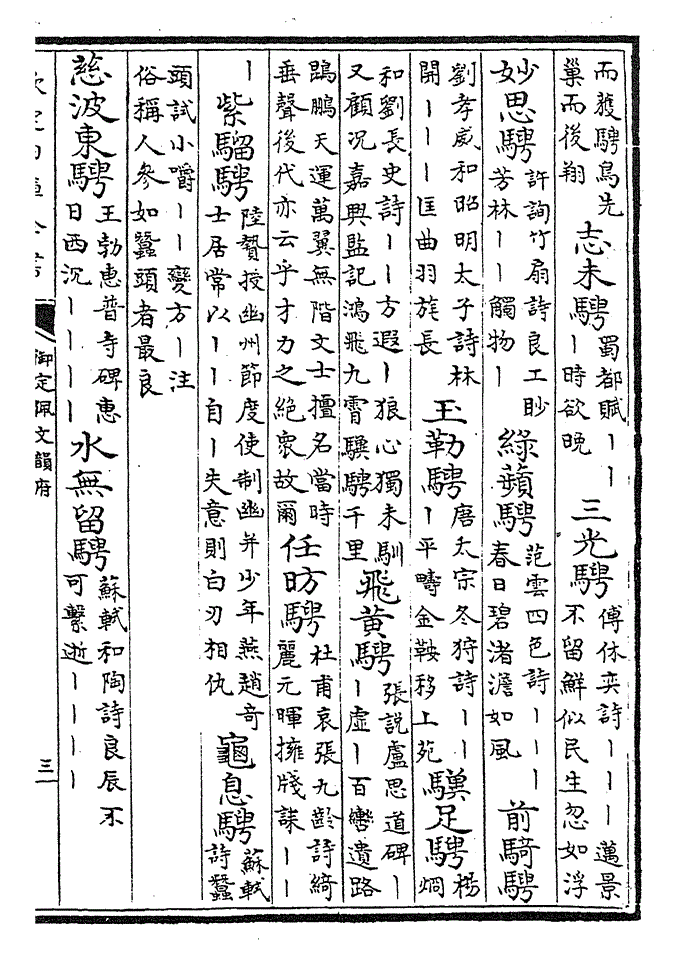 而䕶騁鳥先
巢而後翔
志未騁
蜀都賦丨丨
丨時欲晚
三光騁
傅休奕詩丨丨丨邁景
不留鮮似民生忽如浮
妙思騁
許詢竹扇詩良工眇
芳林丨丨觸物丨
綠蘋騁
范雲四色詩丨丨丨
春日碧渚澹如風
前騎騁
劉孝威和昭明太子詩林
開丨丨丨匡曲羽旄長
玉勒騁
唐太宗冬狩詩丨丨
丨平疇金鞍移上苑
驥足騁
楊
炯
和劉長史詩丨丨方遐丨狼心獨未馴
又顧況嘉興監記鴻飛九霄驥騁千里
飛黄騁
張説盧思道碑丨
丨虚丨百轡遺路
鵾鵬天運萬翼無階文士擅名當時
垂聲後代亦云乎才力之絶衆故爾
任昉騁
杜甫哀張九齡詩綺
麗元暉擁牋誄丨丨
丨
紫騮騁
陸贄授幽州節度使制幽并少年燕趙奇
士居常以丨丨自丨失意則白刃相仇
龜息騁
蘇軾
詩蠶
頭試小嚼丨丨變方丨注
俗稱人參如蠶頭者最良
慈波東騁
王勃惠普寺碑惠
日西沉丨丨丨丨
水無留騁
蘇軾和陶詩良辰不
可繫逝丨丨丨丨
御定佩文韻府
三